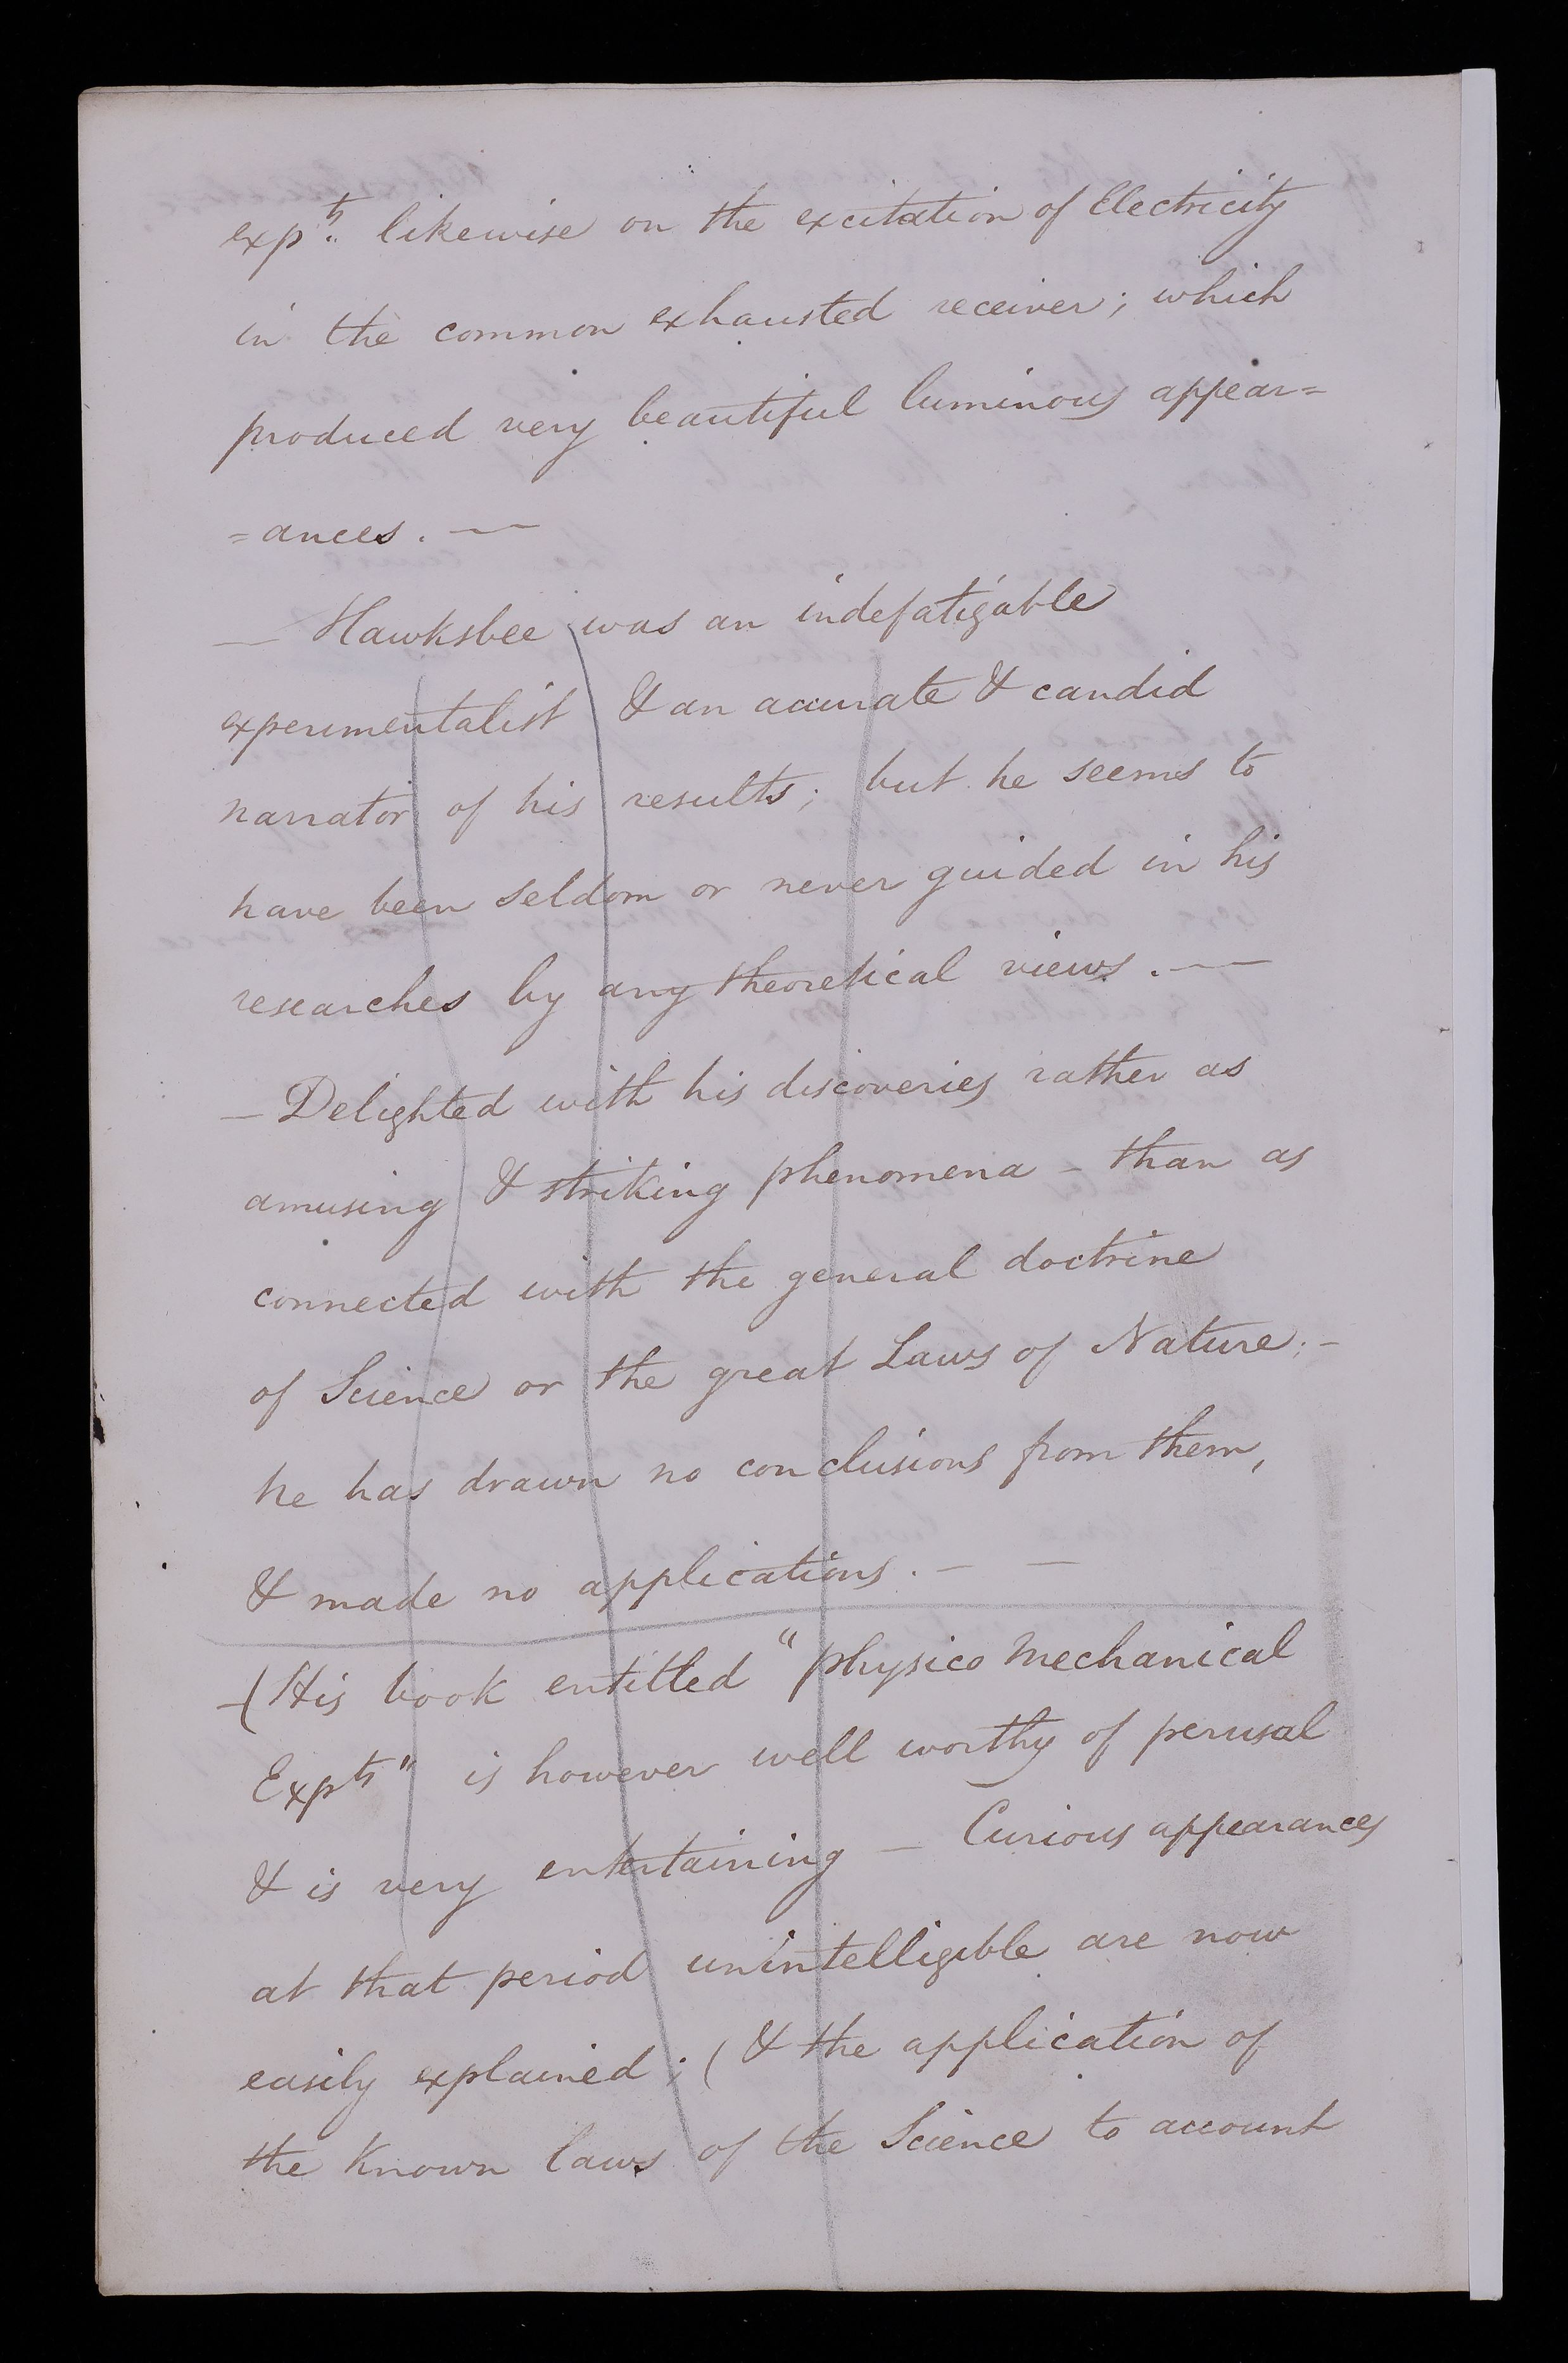 expts. likewise on the excitation of Electricity
in the common exhausted receiver; which
produced very beautiful luminous appear=
=ances. —
— Hawksbee was an indefatigable
experimentalist & an accurate & candid
narrator of his results; but he seems to
have been seldom or never guided in his
researches by any theoretical views. —
— Delighted with his discoveries rather as
amusing & striking phenomena – than as
connected with the general doctrine
of Science or the great Laws of Nature; –
he has drawn no conclusions from them,
& made no applications. — —
–(His book entitled "physico Mechanical
Expts" is however well worthy of perusal
& is very entertaining — Curious appearances
at that period unintelligible are now
easily explained; (& the application of
the known laws of the Science to account